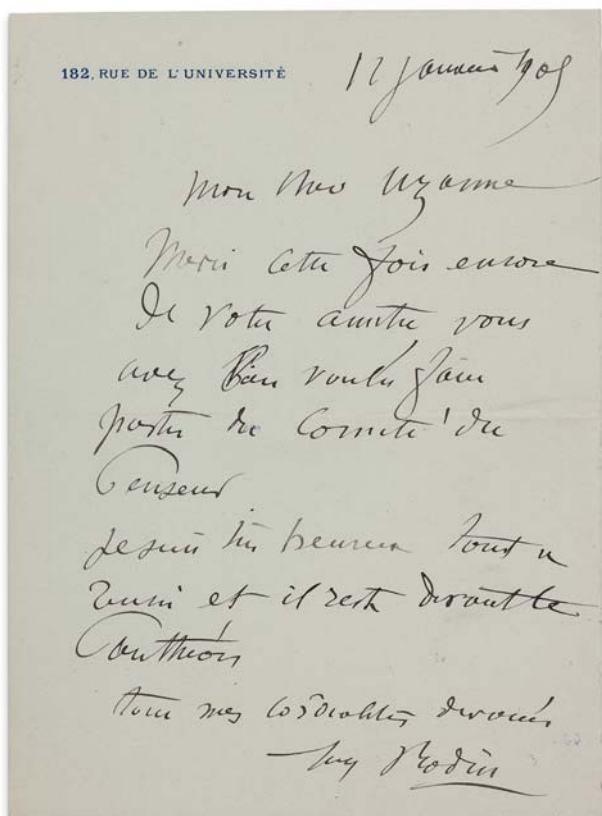 182, RUE DE L'UNIVERSITÉ
12 janvier 1905
Mon cher Uzanne
Merci cette fois encore
de votre amitié vous
avez bien voulu faire
partie du Comité du
Penseur
je suis très heureux tout a
réussi et il reste devant le
Panthéon
tous mes cordialités dévoués
Aug Rodin